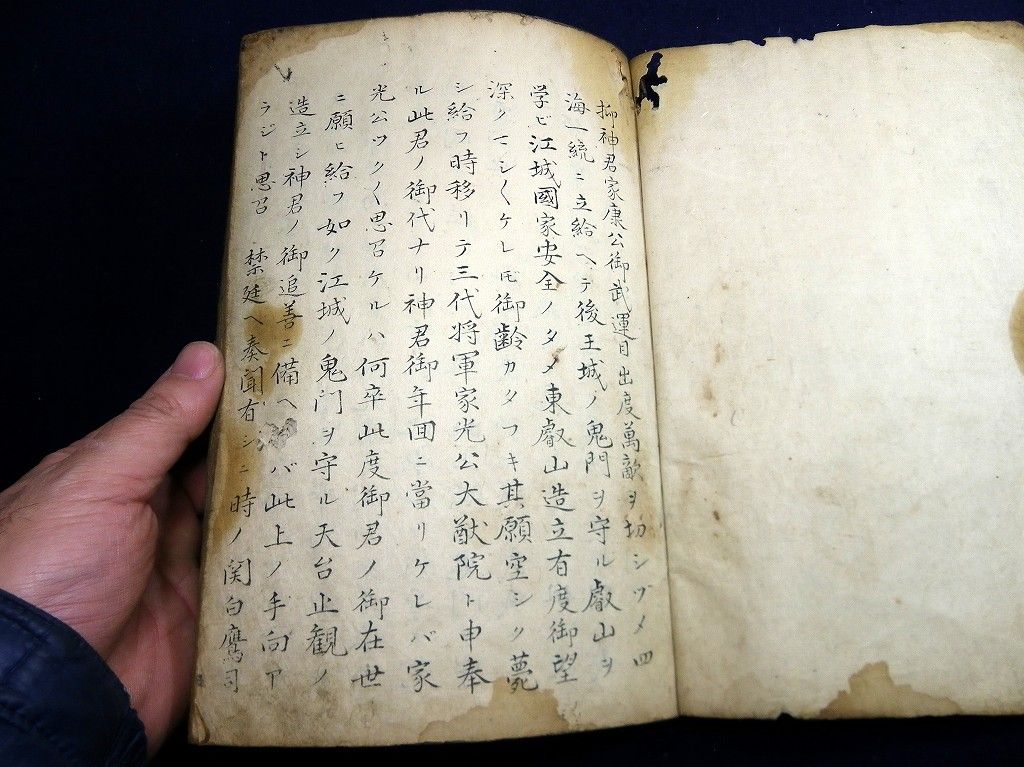 抑神君家康公御武運目出度萬敵ヲ切シヅメ四
海一統ニ立給ヘテ後王城ノ鬼門ヲ守ル叡山ヲ
学ビ江城國家安全ノタメ東叡山造立有度御望
深クマシ〳〵ケレ𪜈御齢カタフキ其願空シク薨
シ給フ時移リテ三代将軍家光公大猷院ト申奉
ル此君ノ御代ナリ神君御年囬ニ當リケレバ家
光公ツク〳〵思召ケルハ何卒此度御君ノ御在世
ニ願ヒ給フ如ク江城ノ鬼門ヲ守ル天台止観ノ
造立シ神君ノ御追善ニ備ヘバ此上ノ手向ア
ラジト思召 禁廷ヘ奏聞有シニ時ノ関白鷹司